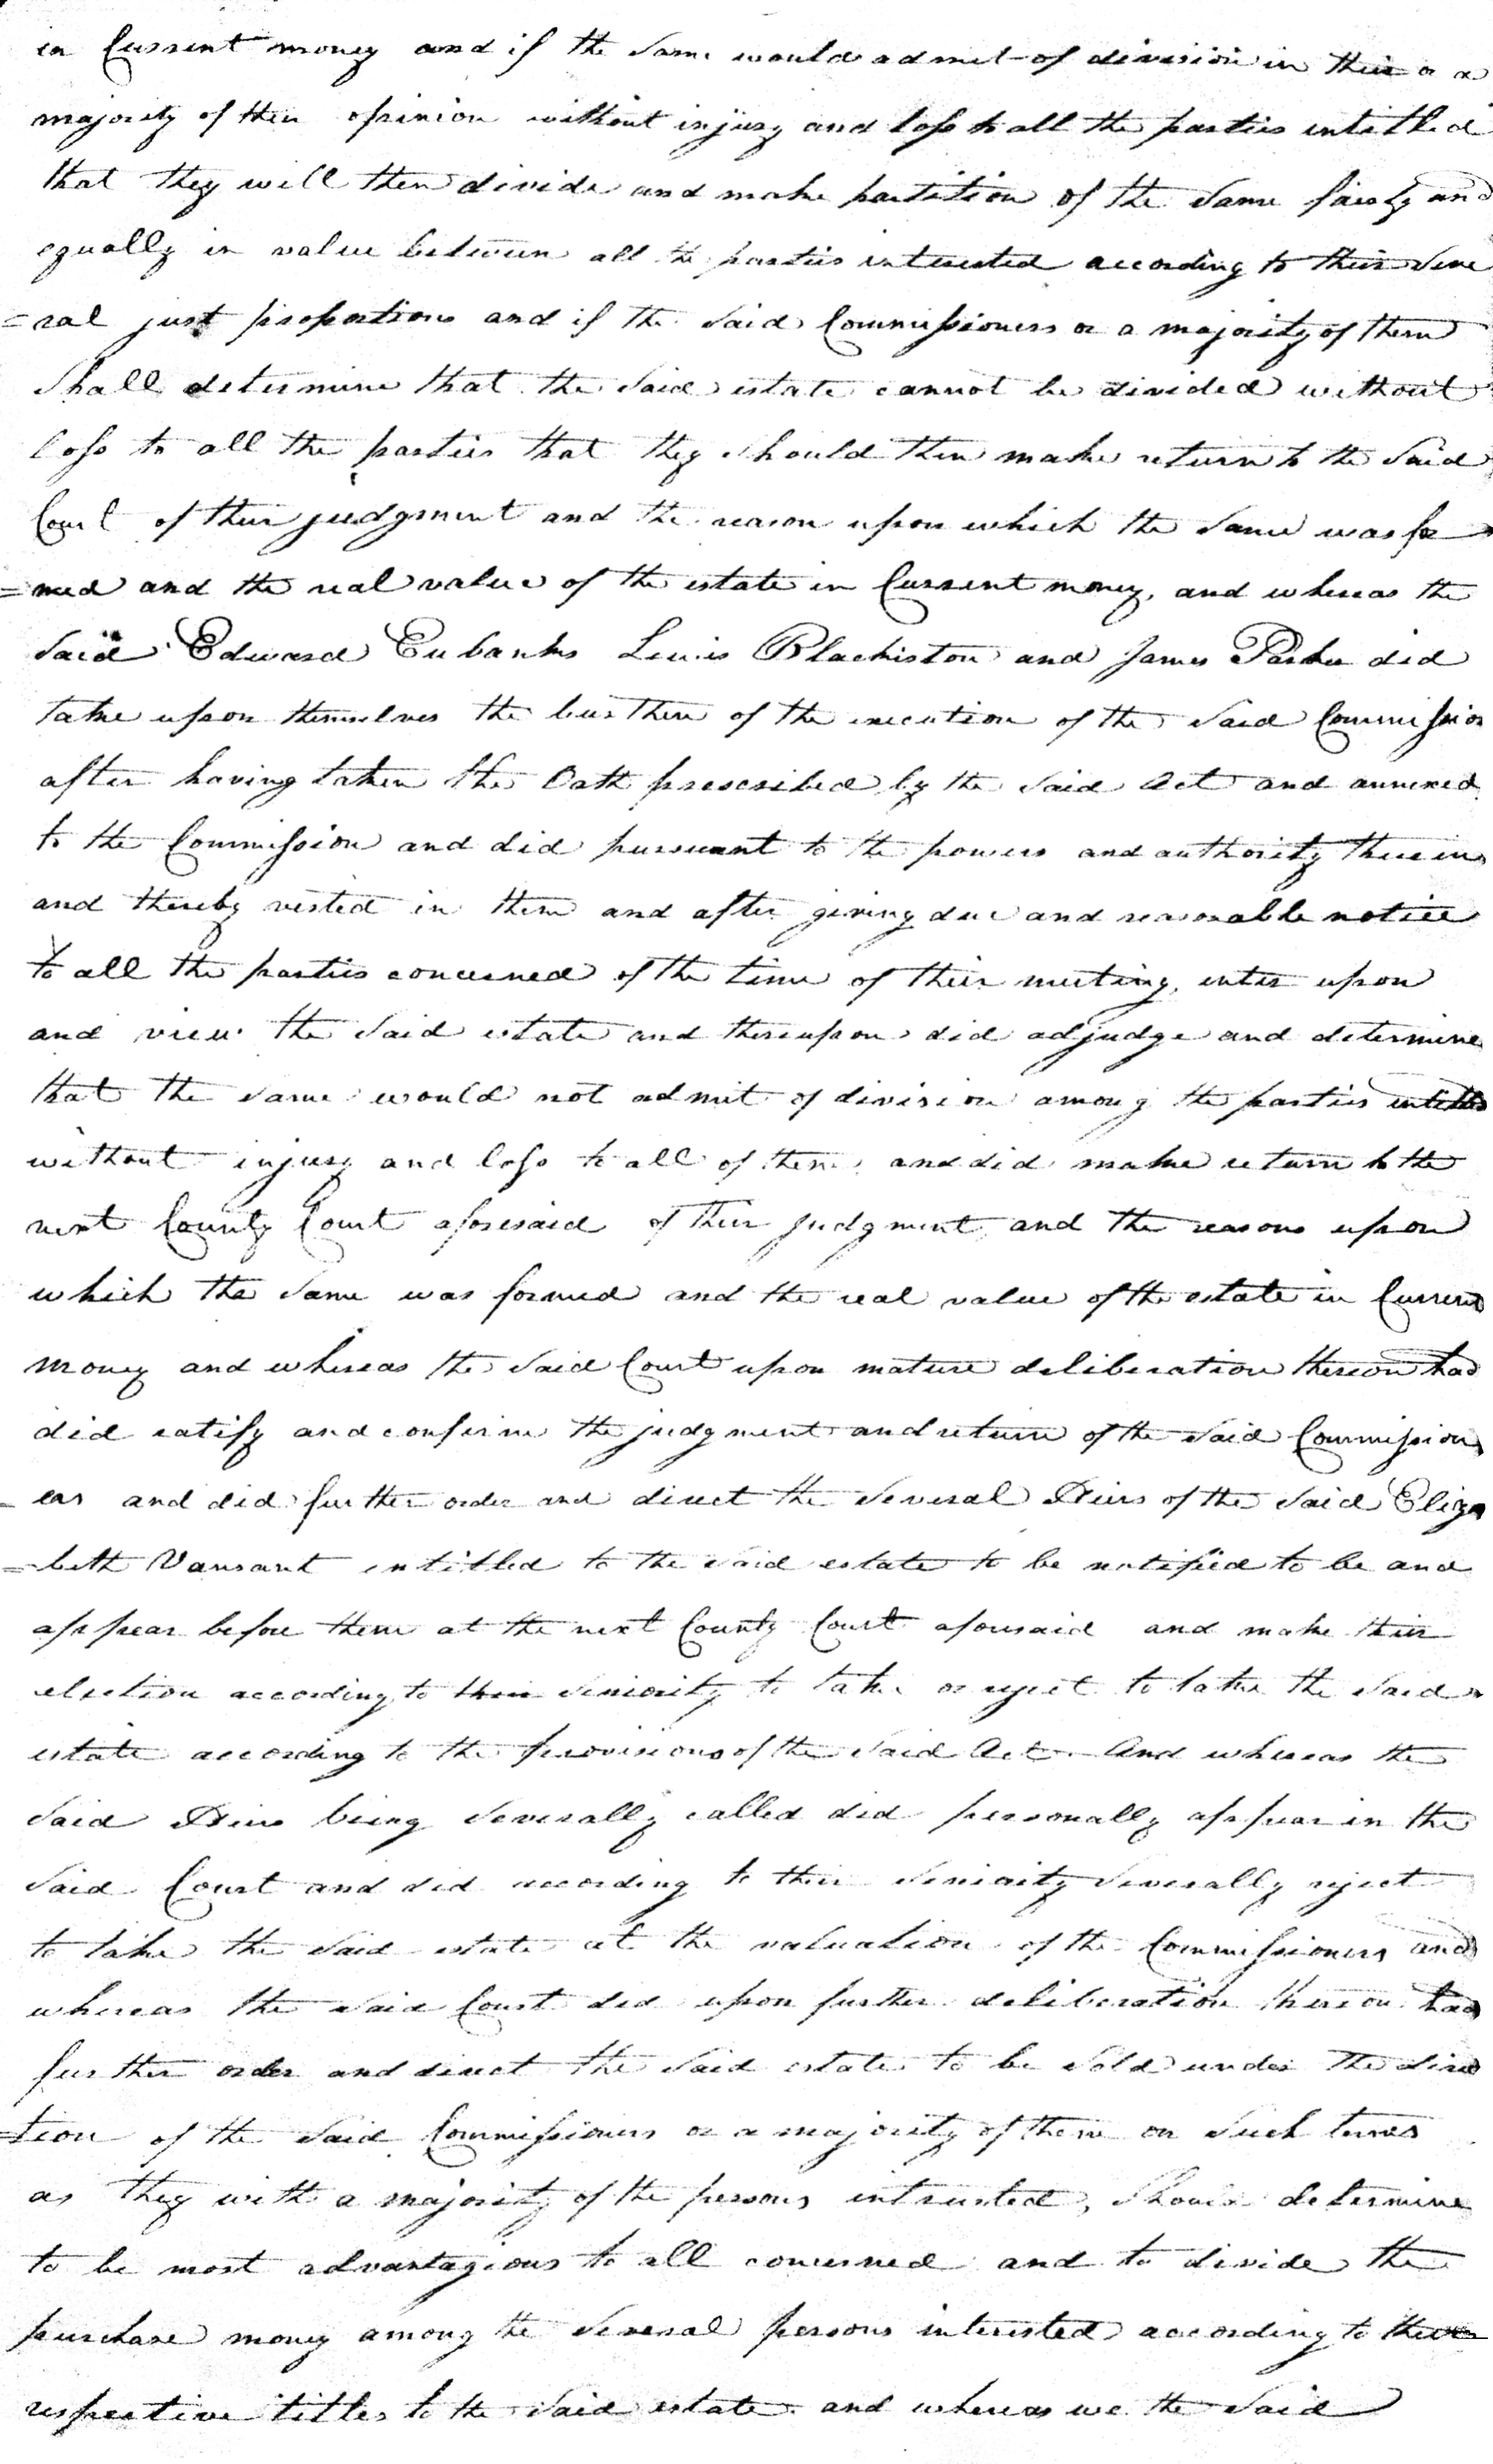 in Current money and if the Same would admit of division in their or a
majority of their opinion without injury and loss to all the parties intitled
that they will then divide and make partition of the Same fairly and
equally in value between all the parties interested according to their Seve
=ral just proportions and if the Said Commissioners or a majority of them
Shall determine that the Said estate cannot be divided without
loss to all the parties that they should then make return to the Said
Court of their judgment and the reason upon which the Same was for
=med and the real value of the estate in Current money, and whereas the
Said Edward Eubanks Lewis Blackiston and James Parke did
take upon themselves the burthen of the execution of the Said Commission
after having taken the Oath prescribed by the Said Act and annexed
to the Commission and did pursuant to the powers and authority therein
and thereby vested in them and after giving due and reasonable notice
to all the parties concerned of the time of their meeting, enter upon
and view the Said estate and thereupon did adjudge and determine
that the Same would not admit of division among the parties intitled
without injury and loss to all of them, and did make return to the
next County Court aforesaid of their judgment and the reasons upon
which the Same was formed and the real value of the estate in Current
money and whereas the Said Court upon mature deliberation thereon had
did ratify and confirm the judgment and return of the Said Commission
=ers and did further order and direct the Several Heirs of the Said Eliza
=beth Vansant intitled to the Said estate to be notified to be and
appear before them at the next County Court aforesaid and make their
election according to their Seniority to take or reject to take the Said
estate according to the provisions of the Said Act. And whereas the
Said Heirs being Severally called did personally appear in the
Said Court and did according to their Seniority Severally reject
to take the Said estate at the valuation of the Commissioners and
whereas the Said Court did upon further deliberation thereon had
further order and direct the Said estate to be Sold under the direc
=tion of the Said Commissioners or a majority of them on Such terms
as they with a majority of the persons intrusted, Should determine
to be most advantagious to all concerned and to divide the
purchase money among the Several persons interested according to their
respective titles to the Said estate and whereas we the Said